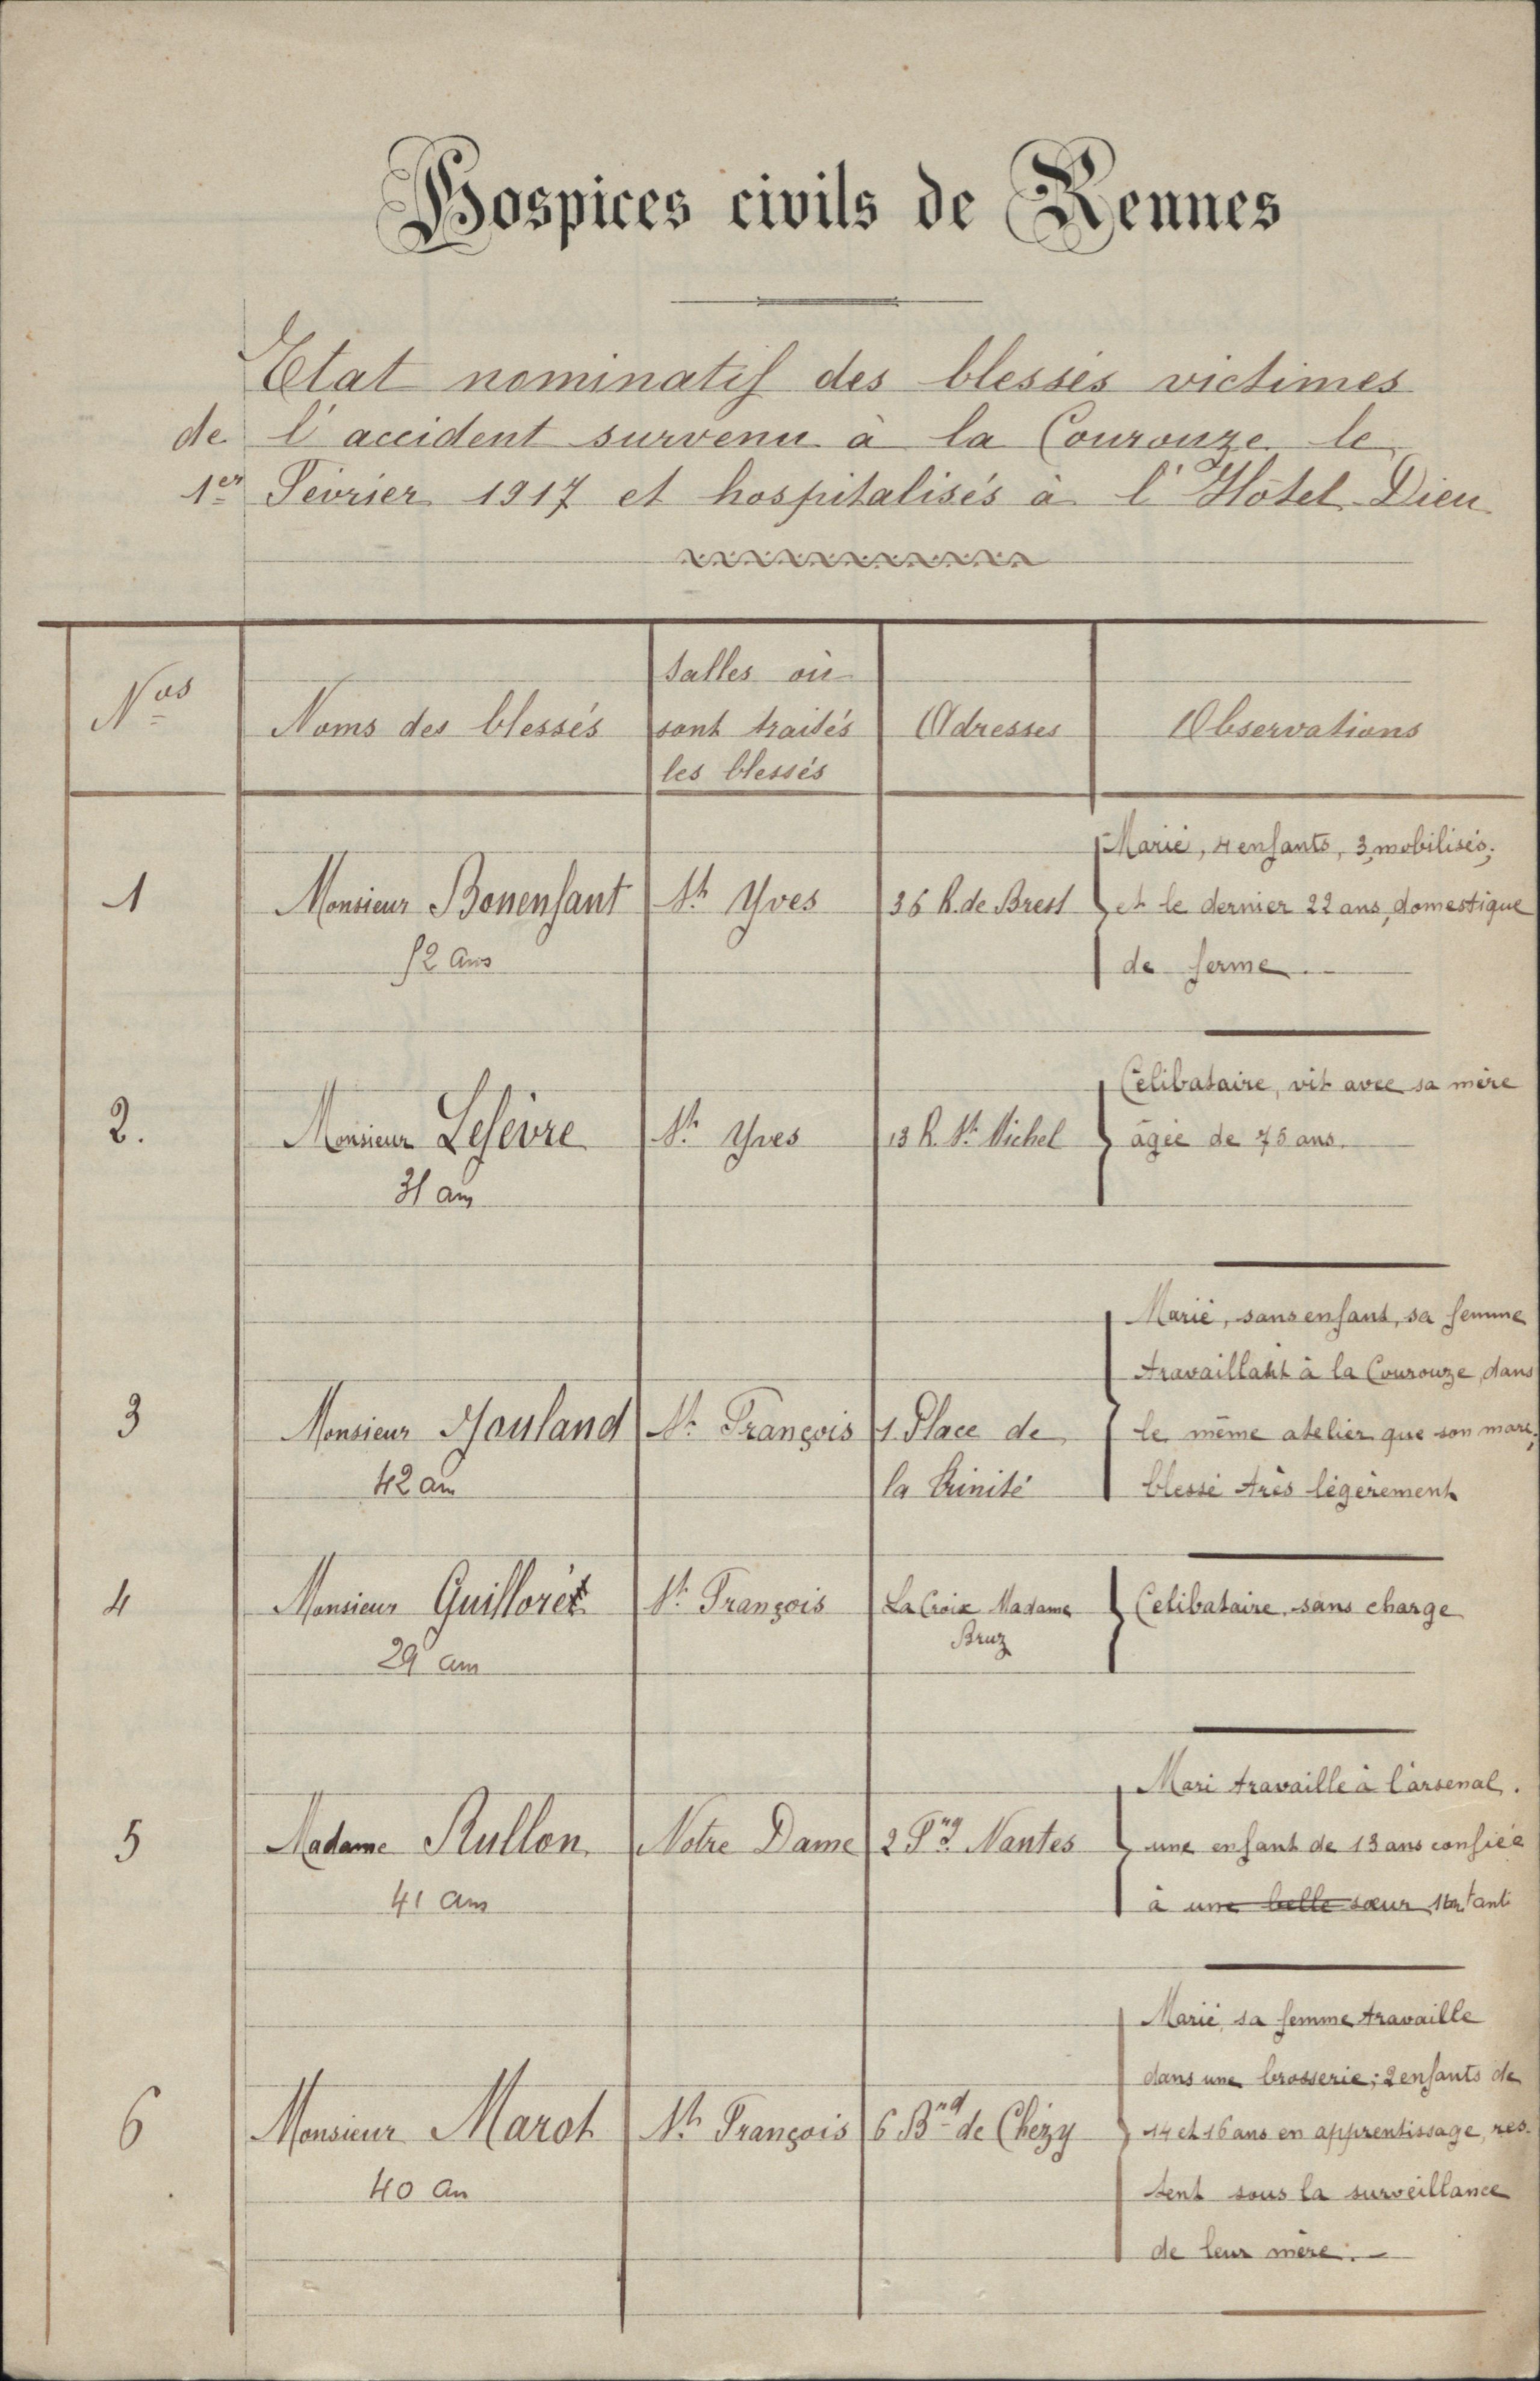 Hospices civils de Rennes
Etat nominatif des blessés victimes
de l'accident survenu à la Courouze le
1er Février 1917 et hospitalisés à l'Hôtel-Dieu
Nos
Noms des blessés
Salles où
sont traités
les blessés
Adresses
Observations
1
Monsieur Bonenfant
52 ans
St Yves
36 R. de Brest
Marié, 4 enfants, 3 mobilisés;
et le dernier 22 ans, domestique
de ferme.
2.
Monsieur Lefèvre
31 ans
St Yves
13 R. St Michel
Célibataire, vit avec sa mère
âgée de 75 ans.
3
Monsieur Houland
42 ans
St François
1 Place de
la Trinité
Marié, sans enfant, sa femme
travaillant à la Courouze, dans
le même atelier que son mari,
blessé très légèrement
4
Monsieur Guilloret
29 ans
St François
La Croix Madame
Bruz
Célibataire, sans charge
5
Madame Rullon
41 ans
Notre Dame
2 Fg Nantes
Mari travaille à l'arsenal.
une enfant de 13 ans confiée
à une belle sœur
6
Monsieur Marot
40 ans
St François
6 Brd de Chézy
Marié, sa femme travaille
dans une brosserie; 2 enfants de
14 et 16 ans en apprentissage, res-
tent sous la surveillance
de leur mère.